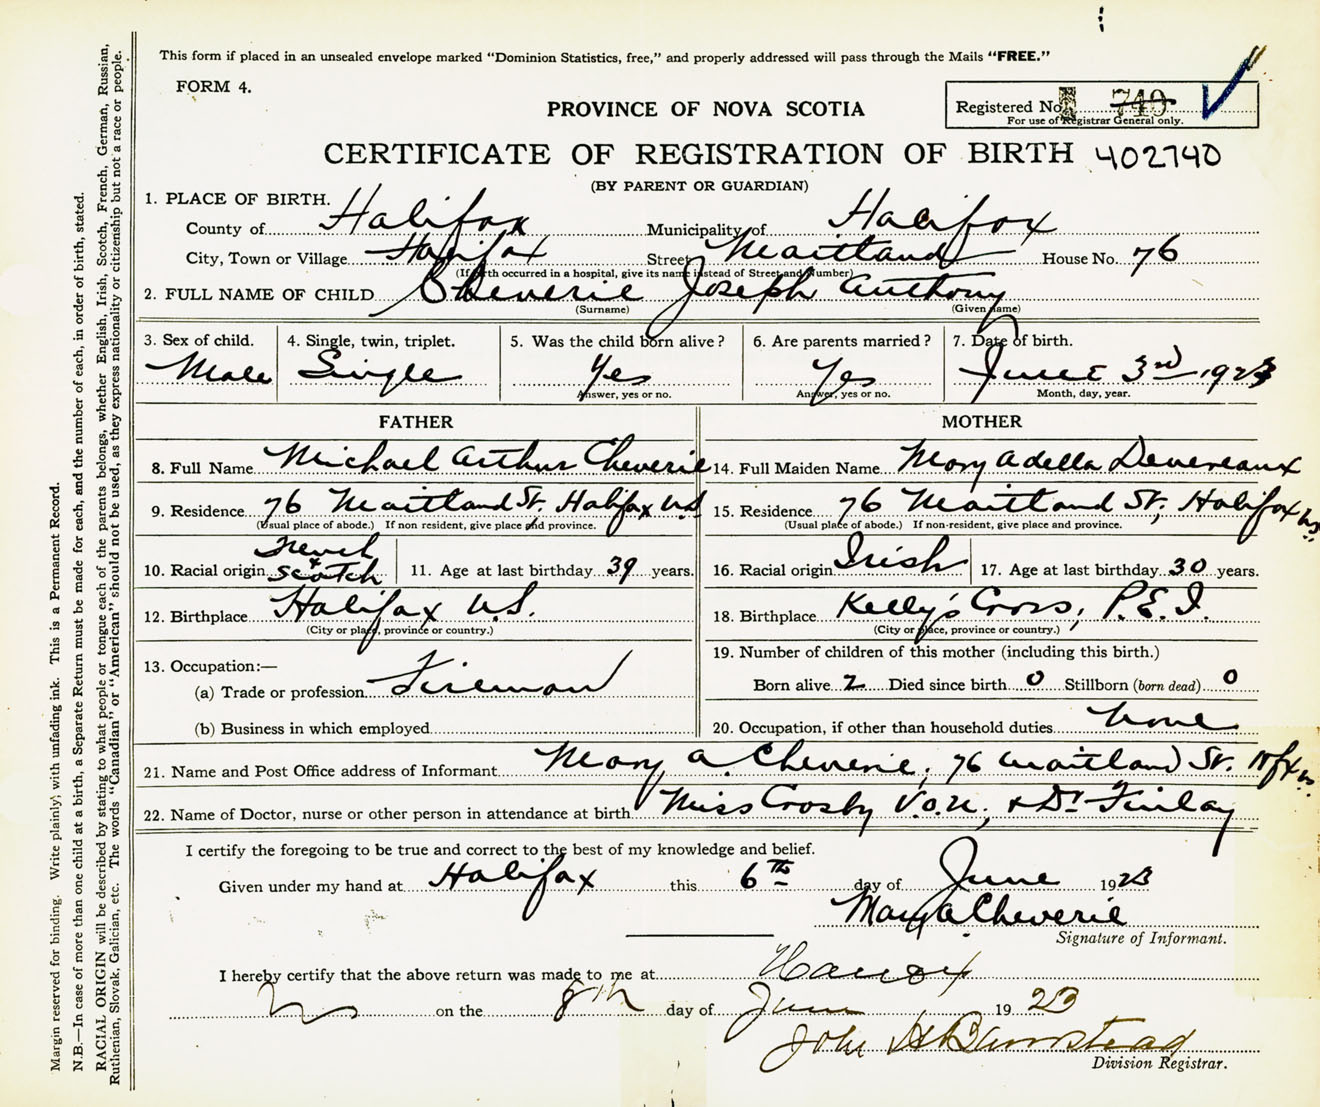 This form if placed in an unsealed envelope marked "Dominion Statistics, free," and properly addressed will pass through the Mails "FREE."
FORM 4.
PROVINCE OF NOVA SCOTIA
Registered No. 740
For use of Registrar General only.
CERTIFICATE OF REGISTRATION OF BIRTH 402740
(BY PARENT OR GUARDIAN)
1. PLACE OF BIRTH.
County of Halifax Municipality of Halifax
City, Town or Village Halifax Street Maitland House No. 76
(If birth occurred in a hospital, give its name instead of Street and Number)
2. FULL NAME OF CHILD Cheverie Joseph Anthony
(Surname) (Given name)
3. Sex of child. 4. Single, twin, triplet. 5. Was the child born alive? 6. Are parents married? 7. Date of birth.
Male Single Yes Yes June 3rd 1923
Answer, yes or no. Answer, yes or no. Month, day, year.
FATHER MOTHER
8. Full Name Michael Arthur Cheverie 14. Full Maiden Name Mary Adella Devereaux
9. Residence 76 Maitland St. Halifax N.S. 15. Residence 76 Maitland St, Halifax N.S.
(Usual place of abode.) If non resident, give place and province. (Usual place of abode.) If non-resident, give place and province.
10. Racial origin French & Scotch 11. Age at last birthday 39 years. 16. Racial origin Irish 17. Age at last birthday 30 years.
12. Birthplace Halifax N.S. 18. Birthplace Kelly's Cross, P.E.I.
(City or place, province or country.) (City or place, province or country.)
13. Occupation:— 19. Number of children of this mother (including this birth.)
(a) Trade or profession Fireman Born alive 2 Died since birth 0 Stillborn (born dead) 0
(b) Business in which employed 20. Occupation, if other than household duties None
21. Name and Post Office address of Informant Mary A. Cheverie, 76 Maitland St. Hfx
22. Name of Doctor, nurse or other person in attendance at birth Miss Crosby V.O.N, & Dr Finlay
I certify the foregoing to be true and correct to the best of my knowledge and belief.
Given under my hand at Halifax this 6th day of June 1923
Mary A Cheverie
Signature of Informant.
I hereby certify that the above return was made to me at Halifax
on the 8th day of June 1923
John H Barnstead
Division Registrar.
Margin reserved for binding. Write plainly, with unfading ink. This is a Permanent Record.
N.B.—In case of more than one child at a birth, a Separate Return must be made for each, and the number of each, in order of birth, stated.
RACIAL ORIGIN will be described by stating to what people or tongue each of the parents belongs, whether English, Irish, Scotch, French, German, Russian,
Ruthenian, Slovak, Galician, etc. The words "Canadian" or "American" should not be used, as they express nationality or citizenship but not a race or people.